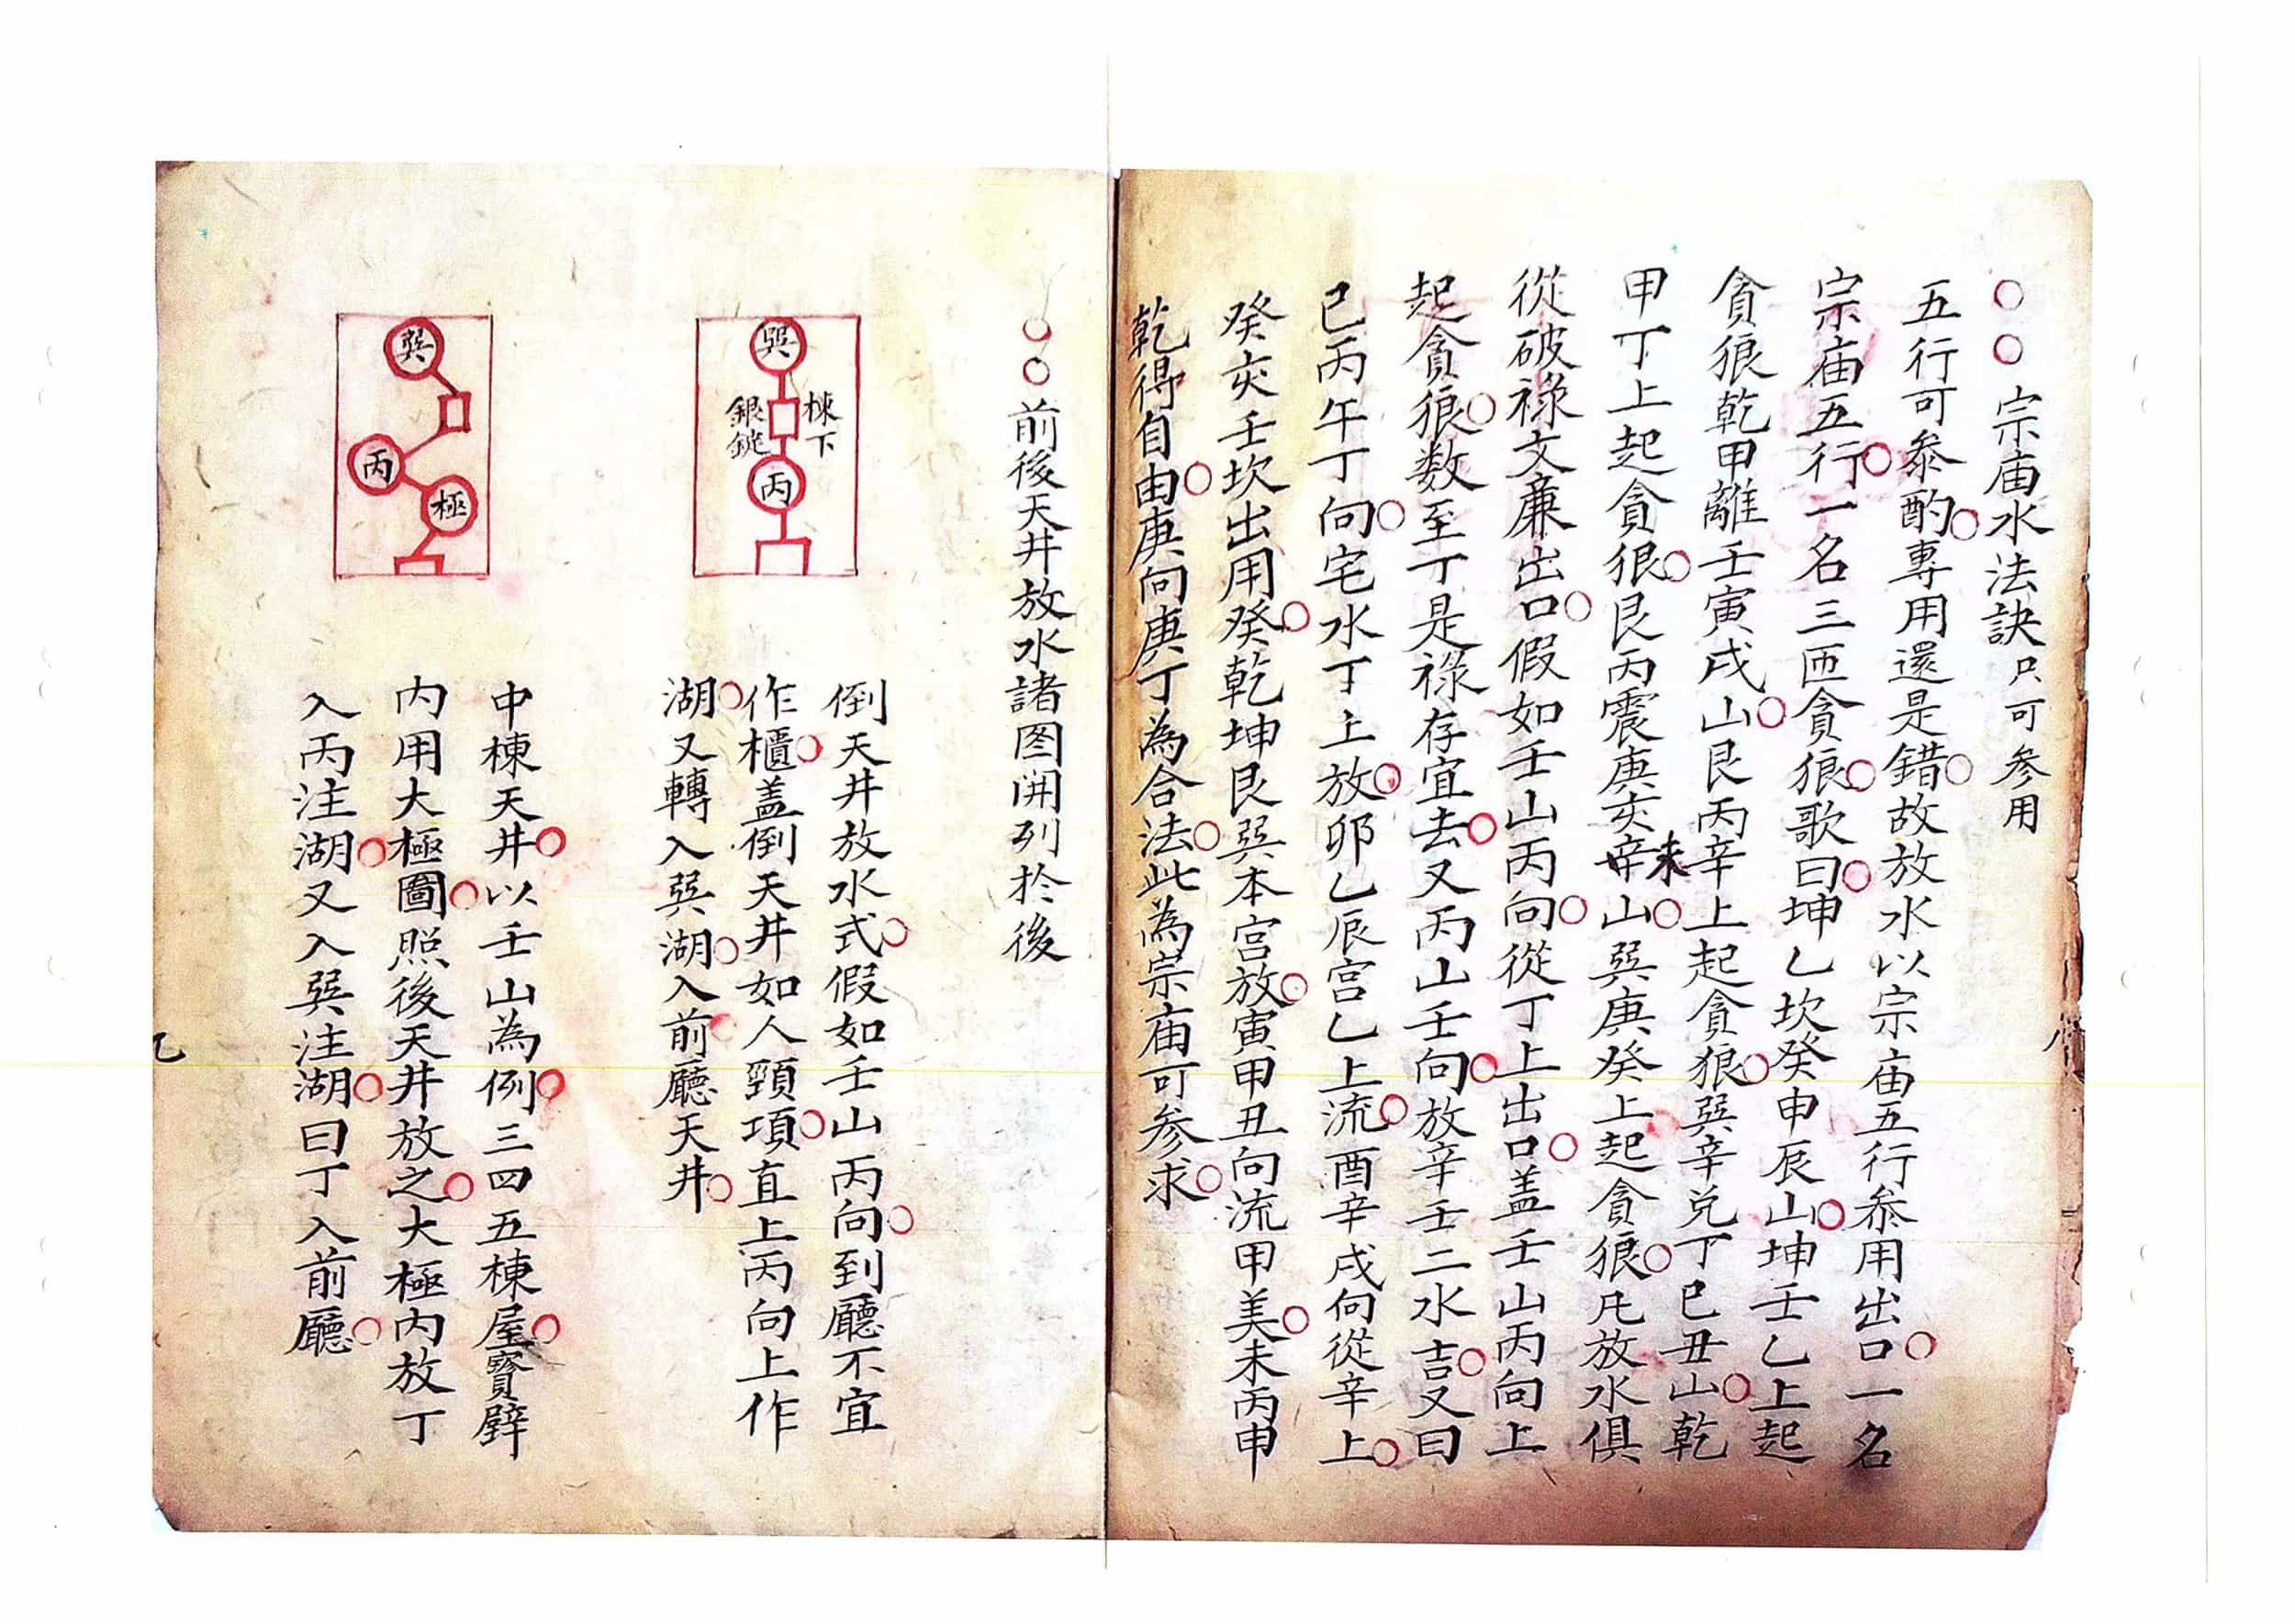 ○○宗庙水法訣只可参用
五行可叅酌○專用還是錯○故放水以宗庙五行叅用出口○一名
宗庙五行○一名三匝貪狼○歌曰○坤乙坎癸申辰山○坤壬乙上起
貪狼乾甲離壬寅戌山○艮丙辛上起貪狼○巽辛兑丁巳丑山○乾
甲丁上起貪狼○艮丙震庚亥辛未山○巽庚癸上起貪狼○凡放水俱
從破祿文廉出口○假如壬山丙向○從丁上出口○盖壬山丙向上
起貪狼○数至丁是祿存宜去○又丙山壬向○放辛壬二水吉○又曰
巳丙午丁向○宅水丁上放○卯乙辰宫乙上流○酉辛戌向從辛上○
癸亥壬坎出用癸○乾坤艮巽本宫放○寅甲丑向流甲美○未丙申
乾得自由○庚向庚丁為合法○此為宗庙可参求○
○○前後天井放水諸图開列於後
巽
棟下
銀錠
丙
倒天井放水式○假如壬山丙向○到廳不宜
作櫃○盖倒天井如人頸項○直上丙向上作
湖○又轉入巽湖○入前廳天井○
巽
丙
極
中棟天井○以壬山為例○三四五棟屋○寳壁
内用大極圖○照後天井放之○大極内放丁
入丙注湖○又入巽注湖○曰丁入前廳○
乙